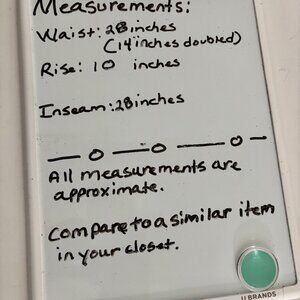 Measurements:
Waist: 28inches
(14inches doubled)
Rise: 10 inches
Inseam: 28inches
All measurements are
approximate.
Compare to a similar item
in your closet.
U BRANDS